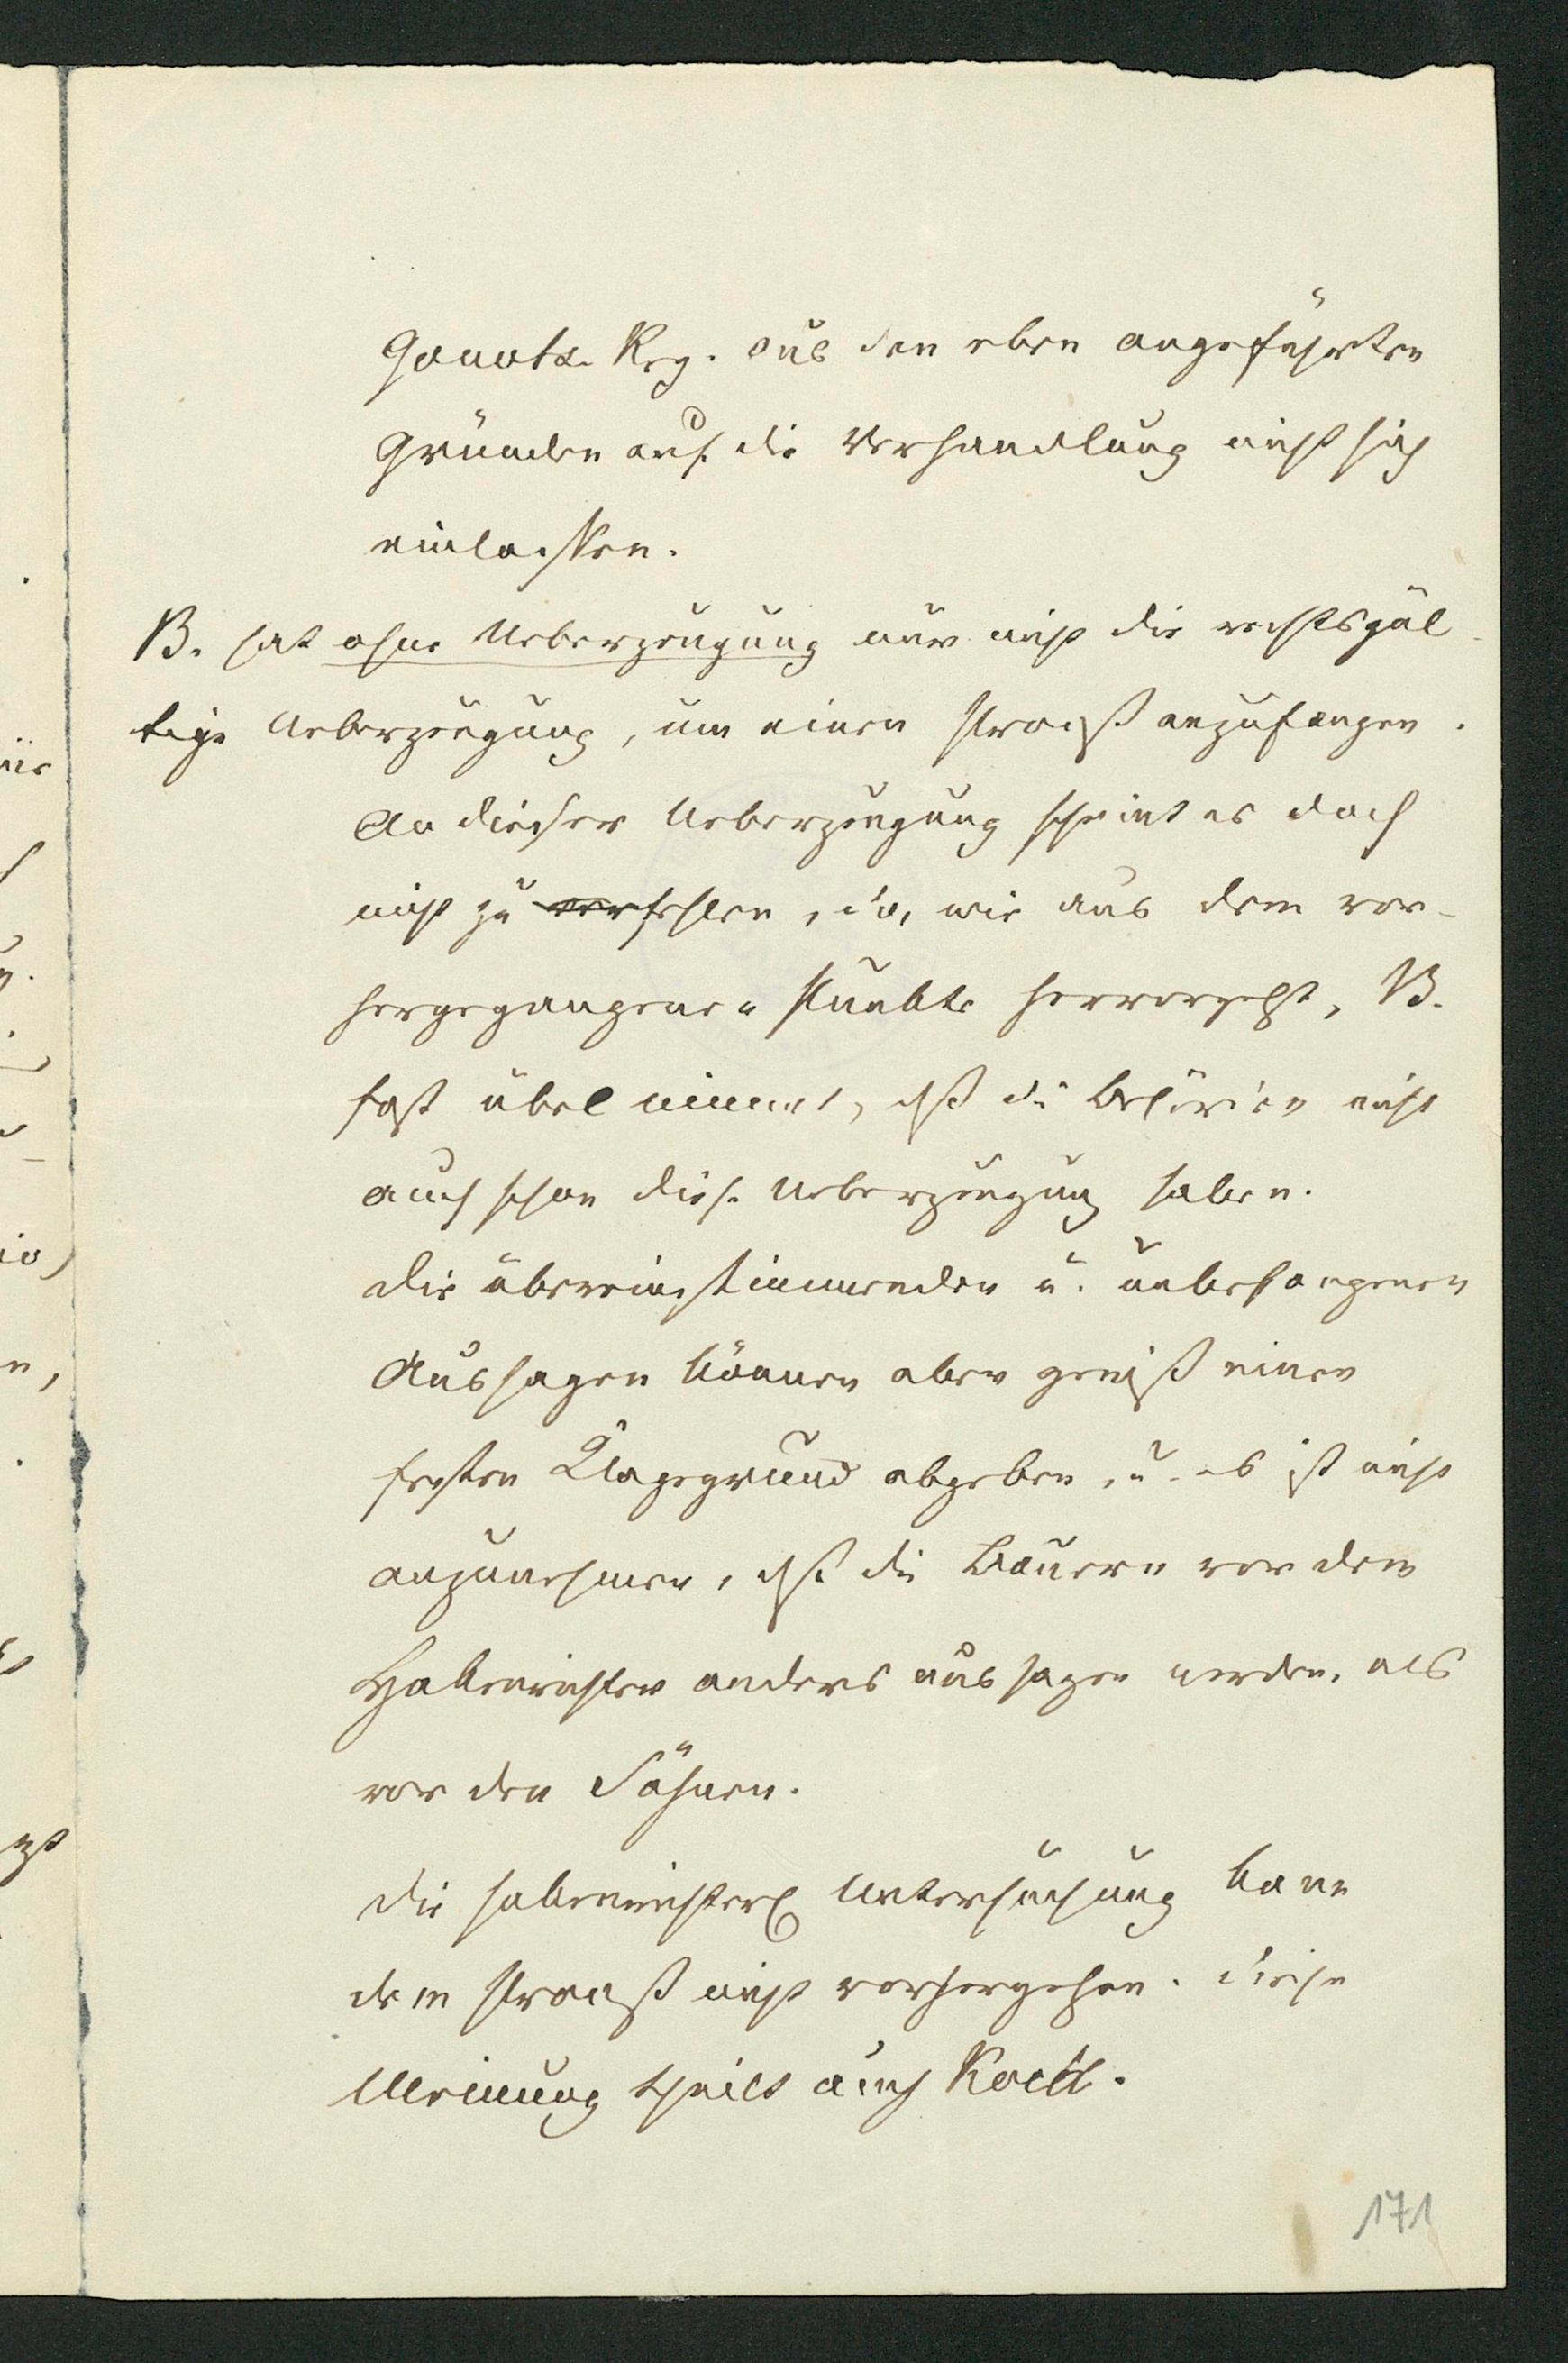 Gouvts. Reg. aus den eben angeführten
Gründen auf die Verhandlung nicht sich
einlassen.
B. hat ohne Ueberzeugung nur nicht die rechtsgül-
tige Ueberzeugung, um einen Proceß anzufangen.
An dieser Ueberzeugung scheint es doch
nicht zu fehlen, da, wie aus dem vor-
hergegangenen Punkte hervorgeht, B.
fast übel nimmt, daß die Behörden nicht
auch schon diese Ueberzeugung haben.
Die übereinstimmenden u. unbefangenen
Aussagen können aber gewiß einen
festen Klagegrund abgeben, u. es ist nicht
anzunehmen, daß die Bauern vor dem
Hakenrichter anders aussagen werden, als
vor den Söhnen.
Die hakenrichterl Untersuchung kann
dem Proceß nicht vorhergehen. Diese
Meinung theilt auch
171